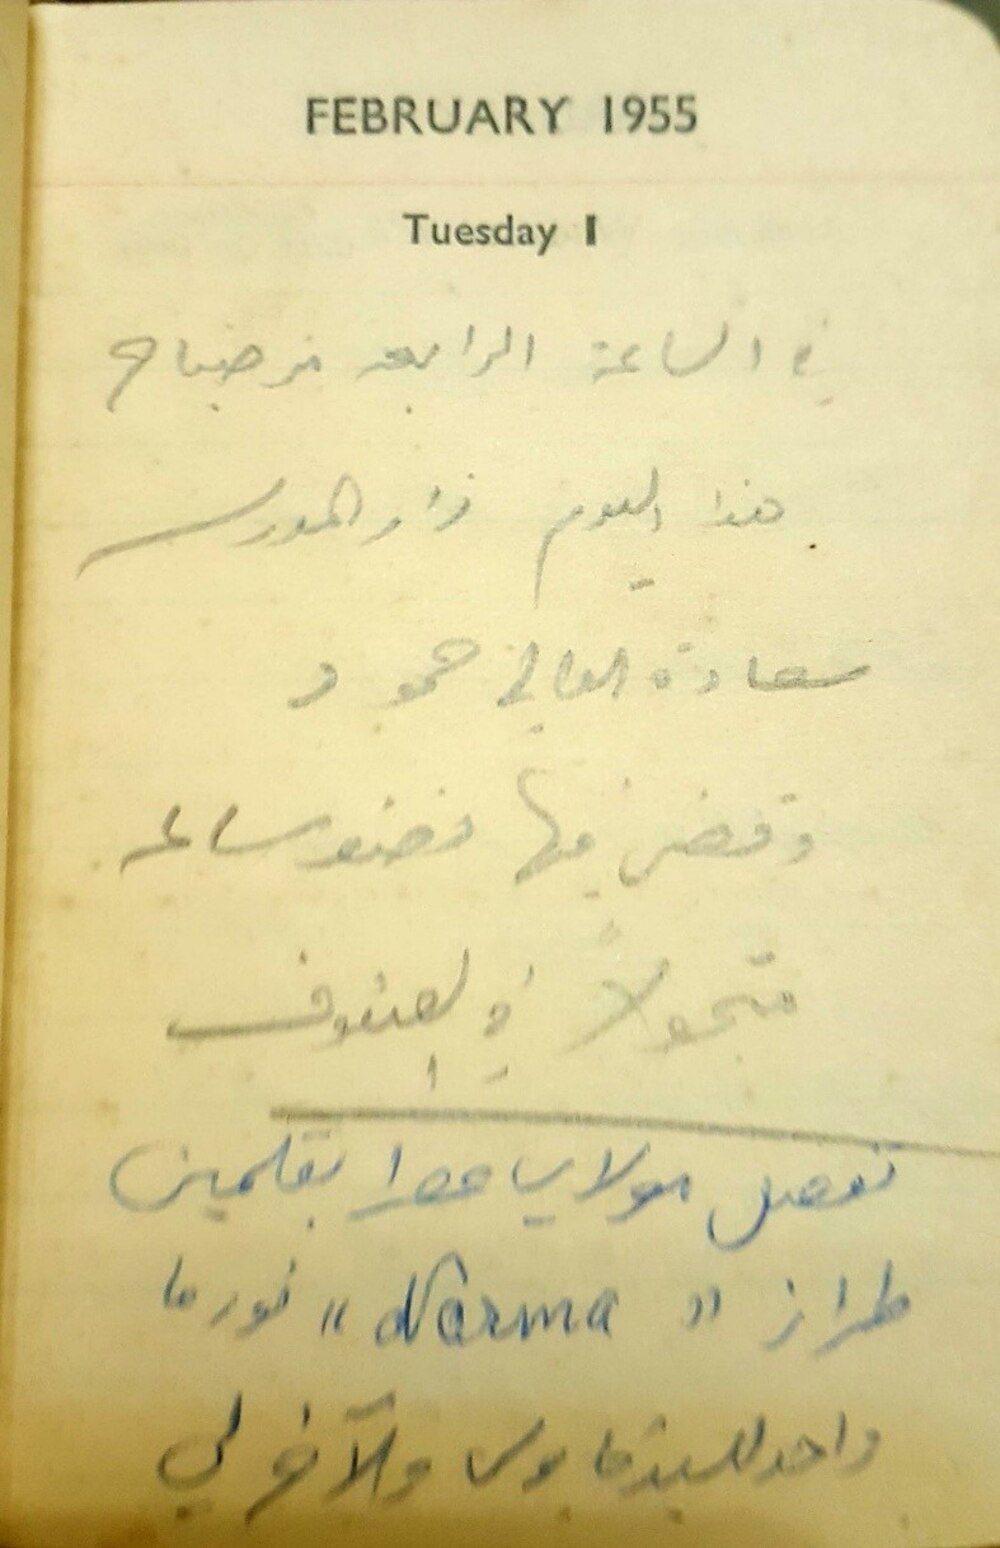 FEBRUARY 1955
Tuesday 1
في الساعة الرابعة من صباح
هذا اليوم زار المدرسة
سعادة الوالي حمود
وقضى فيها نصف ساعة
متجولاً في الصفوف
تفضل مولاي بقلمين
طراز " Norma " نورما
واحد للسيد قابوس والآخر لي